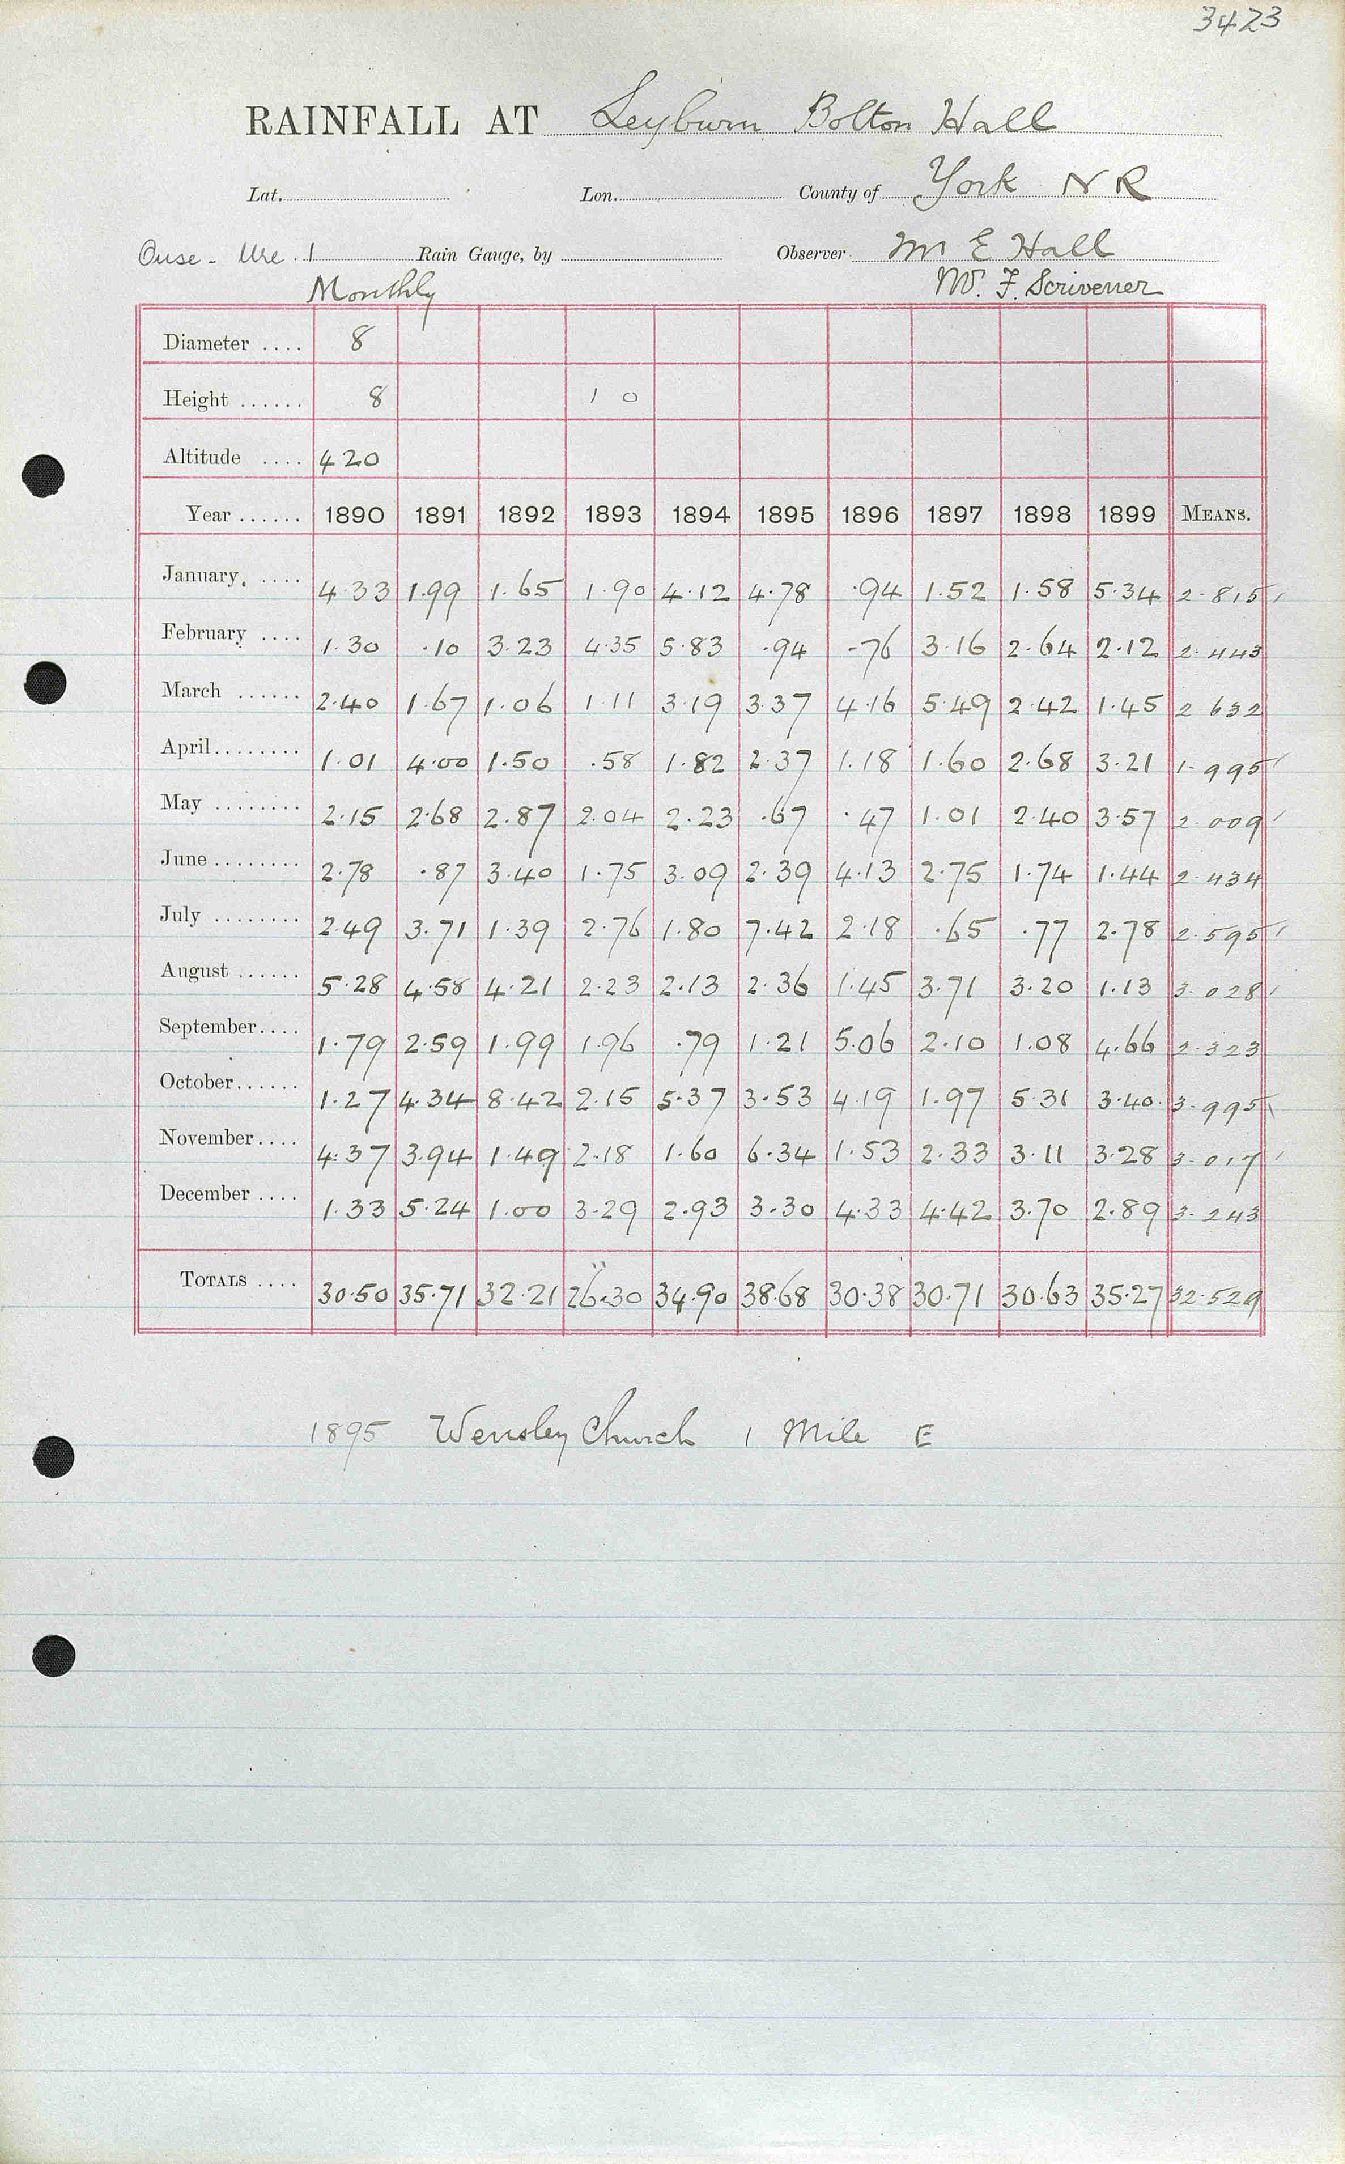 3423
RAINFALL AT Leyburn Bolton Hall
Lat. Lon. County of York N R
Ouse - Ure. 1 Rain Gauge, by Observer M E Hall
Monthly W. F. Scrivener
Diameter .... 8
Height ...... 8 1 0
Altitude .... 420
Year ...... 1890 1891 1892 1893 1894 1895 1896 1897 1898 1899 MEANS.
January, .... 4.33 1.99 1.65 1.90 4.12 4.78 .94 1.52 1.58 5.34 2.815
February .... 1.30 .10 3.23 4.35 5.83 .94 .76 3.16 2.64 2.12 2.443
March ...... 2.40 1.67 1.06 1.11 3.19 3.37 4.16 5.49 2.42 1.45 2.632
April........ 1.01 4.00 1.50 .58 1.82 2.37 1.18 1.60 2.68 3.21 1.995
May ........ 2.15 2.68 2.87 2.04 2.23 .67 .47 1.01 2.40 3.57 2.009
June ........ 2.78 .87 3.40 1.75 3.09 2.39 4.13 2.75 1.74 1.44 2.434
July ........ 2.49 3.71 1.39 2.76 1.80 7.42 2.18 .65 .77 2.78 2.595
August ...... 5.28 4.58 4.21 2.23 2.13 2.36 1.45 3.71 3.20 1.13 3.028
September.... 1.79 2.59 1.99 1.96 .79 1.21 5.06 2.10 1.08 4.66 2.323
October...... 1.27 4.34 8.42 2.15 5.37 3.53 4.19 1.97 5.31 3.40 3.995
November.... 4.37 3.94 1.49 2.18 1.60 6.34 1.53 2.33 3.11 3.28 3.017
December .... 1.33 5.24 1.00 3.29 2.93 3.30 4.33 4.42 3.70 2.89 3.243
TOTALS .... 30.50 35.71 32.21 26.30 34.90 38.68 30.38 30.71 30.63 35.27 32.529
1895 Wensley Church 1 Mile E